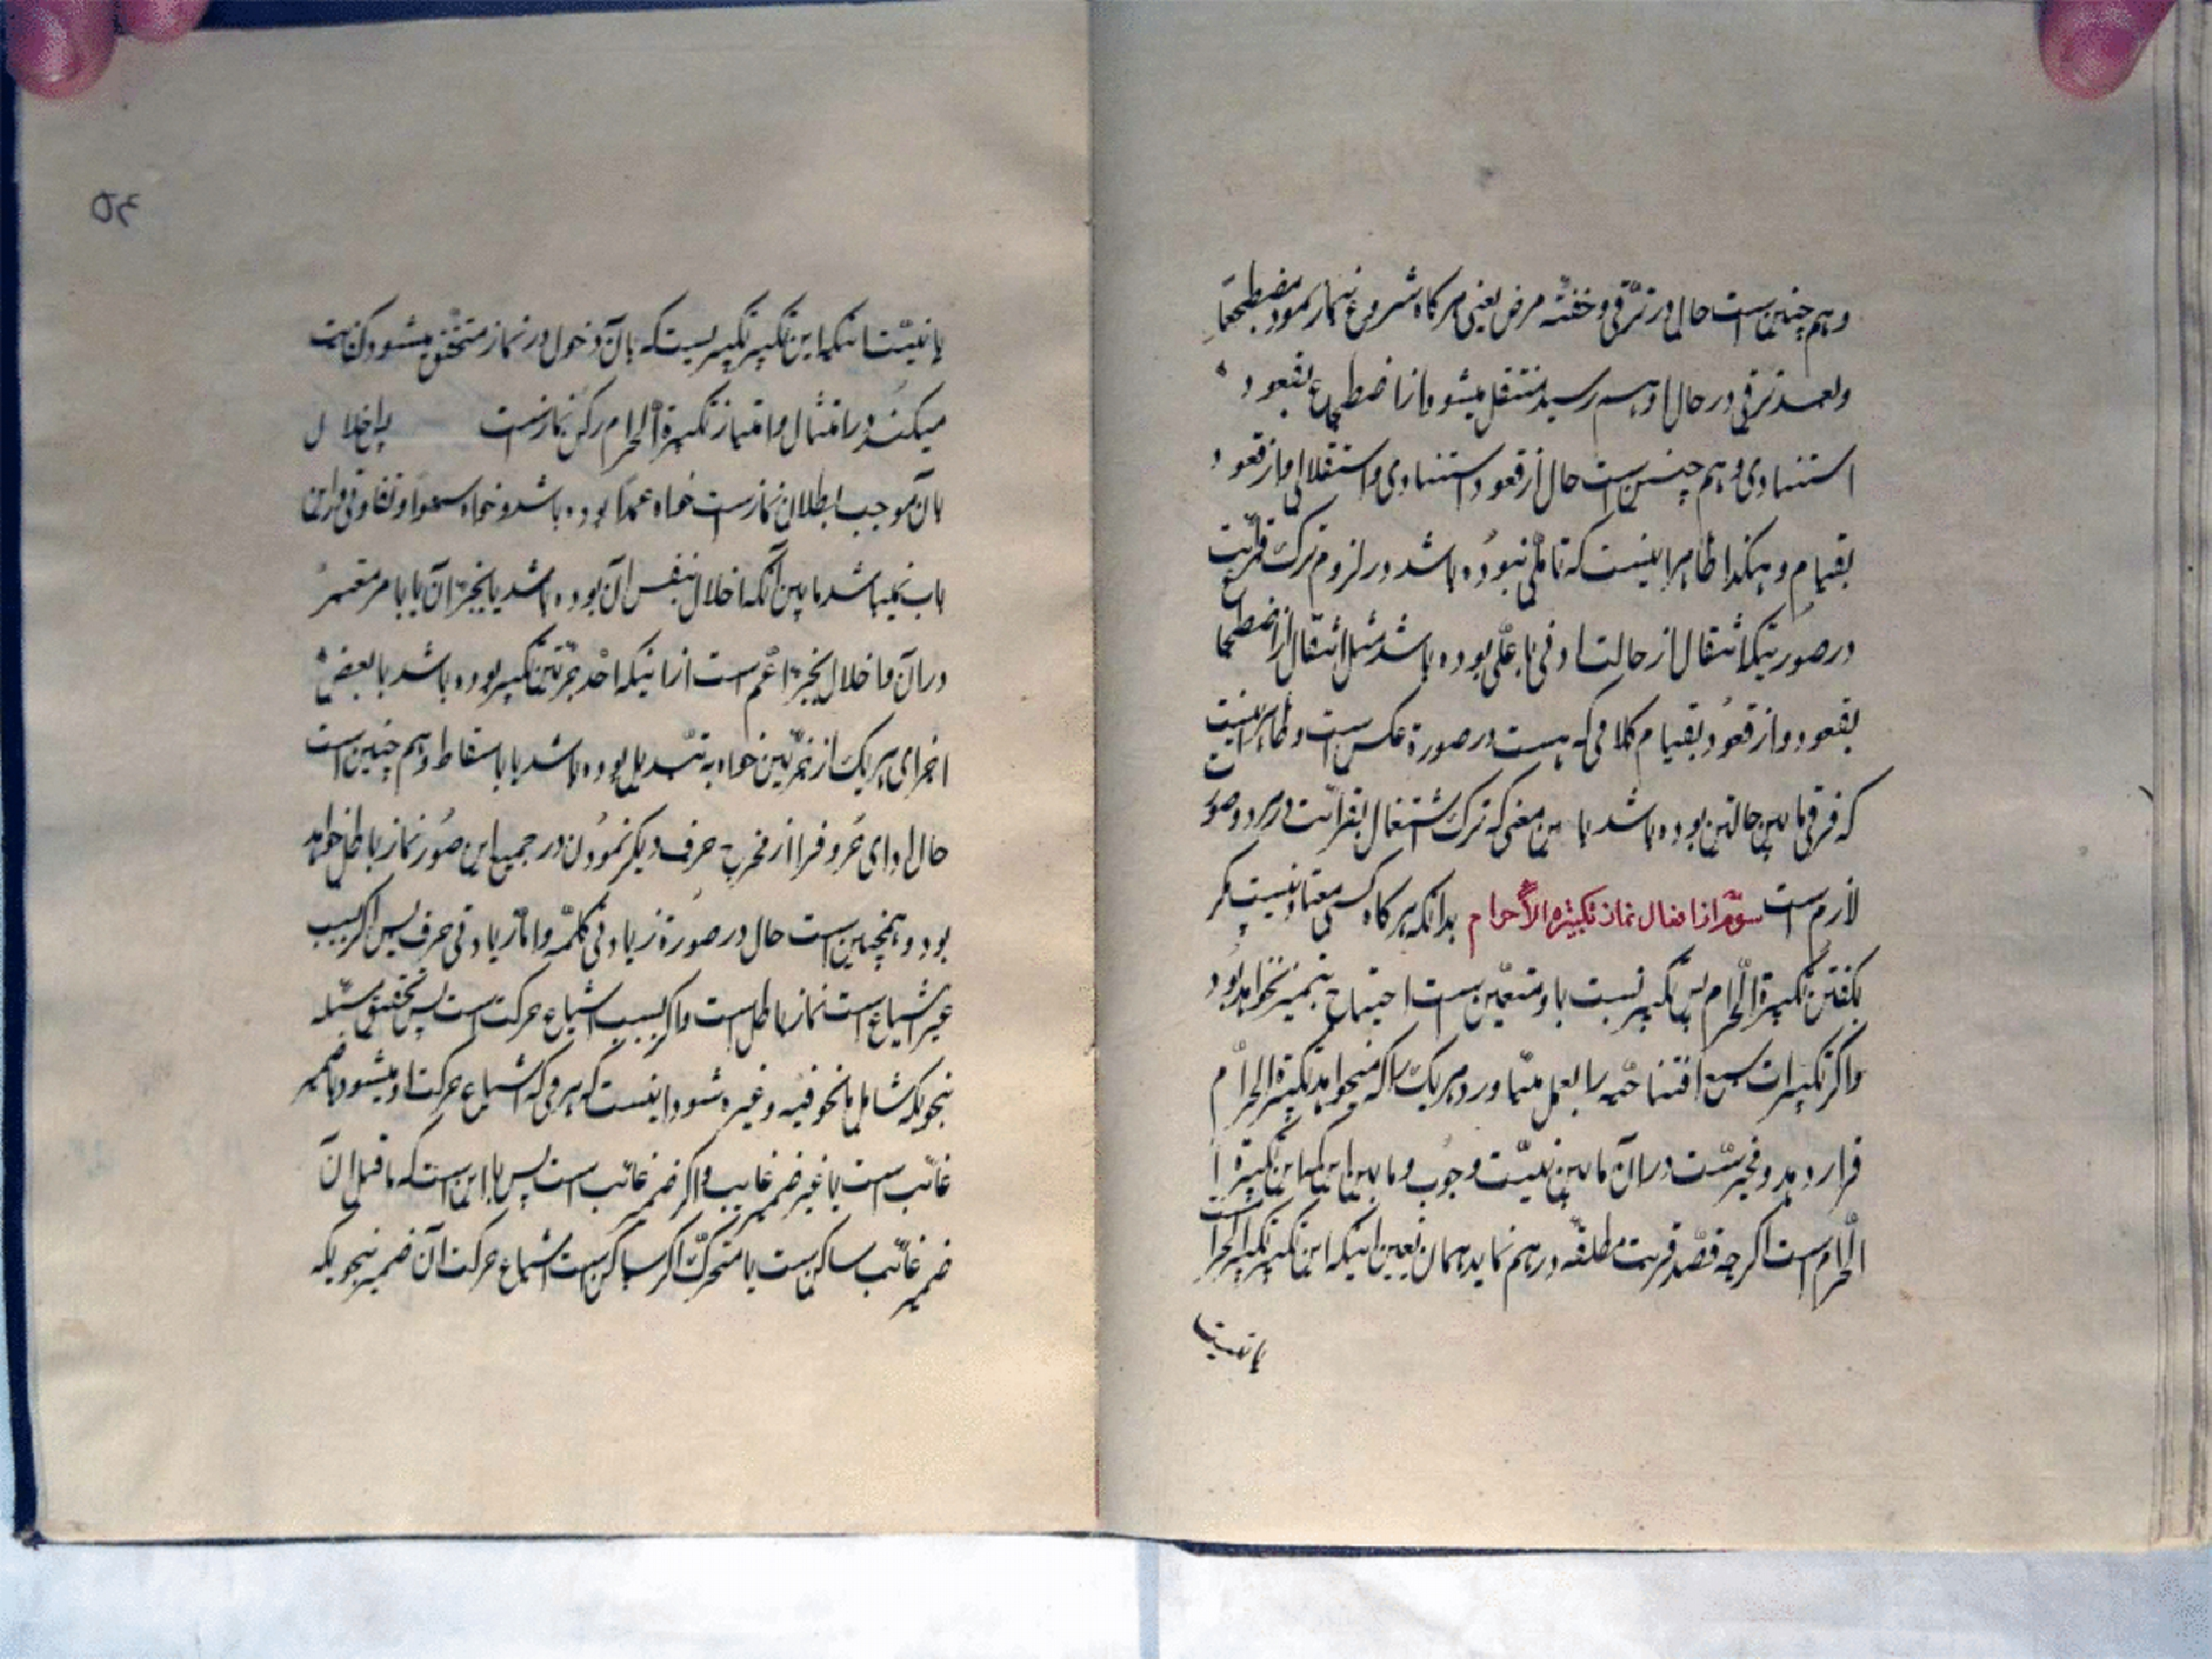 و هم چنین است حال در ترقی و خفته مرض یعنی هر کاه شروع بنماز نمود مضطجعا
و بعد ترقی در حال او بهم رسید منتقل میشود از اضطجاع بقعود
استنادی و هم چنین است حال از قعود استنادی و استقلالی و از قعود
بقیام و هکذا ظاهر اینست که تاملی نبوده باشد در لزوم ترک قرائت
در صورتیکه انتقال از حالت ادنی باعلی بوده باشد مثل انتقال از اضطجاع
بقعود و از قعود بقیام کلامی که هست در صورة عکس است و ظاهر اینست
که فرقی مابین حالتین بوده باشد باین معنی که ترک اشتغال بقرائت در هر دو صورت
لازم است سوم از افعال نماز تکبیرة الاحرام بدانکه هر کاه کسی معتاد نیست مکر
بکفتن تکبیرة الاحرام پس تکبیر نسبت باو متعین است احتیاج بتمیز نخواهد بود
و اکر تکبیرات سبع افتتاحیه را بعمل میاورد هر یک را که میخواهد تکبیرة الاحرام
قرار دهد و مخیر است در آن مابین نیت وجوب و مابین اینکه این تکبیرة
الاحرام است اکرچه قصد قربت مطلقه در هم نماید همان تعیین اینکه این تکبیر تکبیرة الاحرام است
یا نیت
۵۴
یا نیت اینکه این تکبیر تکبیریست که بآن دخول در نماز متحقق میشود کفایت
میکند در امتثال و امتیاز تکبیرة الاحرام رکن نماز است اخلال
بآن موجب بطلان نماز است خواه عمدا بوده باشد و خواه سهوا و تفاوتی در این
باب نمیباشد مابین آنکه اخلال بنفس آن بوده باشد یا بجزء آن یا بامر معتبر
در آن و اخلال بجزء اعم است از اینکه احد جزئین تکبیر بوده باشد یا بعض
اجزای هر یک از جزئین خواه به تبدیل بوده باشد یا باسقاط و هم چنین است
حال ادای حروف را از مخرج حرف دیکر نمودن در جمیع این صور نماز باطل خواهد
بود و همچنین است حال در صورة زیادتی کلمه و اما زیادتی حرف پس اکر بسبب
غیر اشباع است نماز باطل است و اکر بسبب اشباع حرکت است پس تحقیق مسئله
بنحویکه شامل مانحن فیه و غیره شود اینست که هر فی که اشباع حرکت او میشود یا ضمیر
غائب است یا غیر ضمیر غایب و اکر ضمیر غائب است پس یا این است که ماقبل آن
ضمیر غائب ساکن است یا متحرک اکر ساکن است اشباع حرکت آن ضمیر بنحویکه